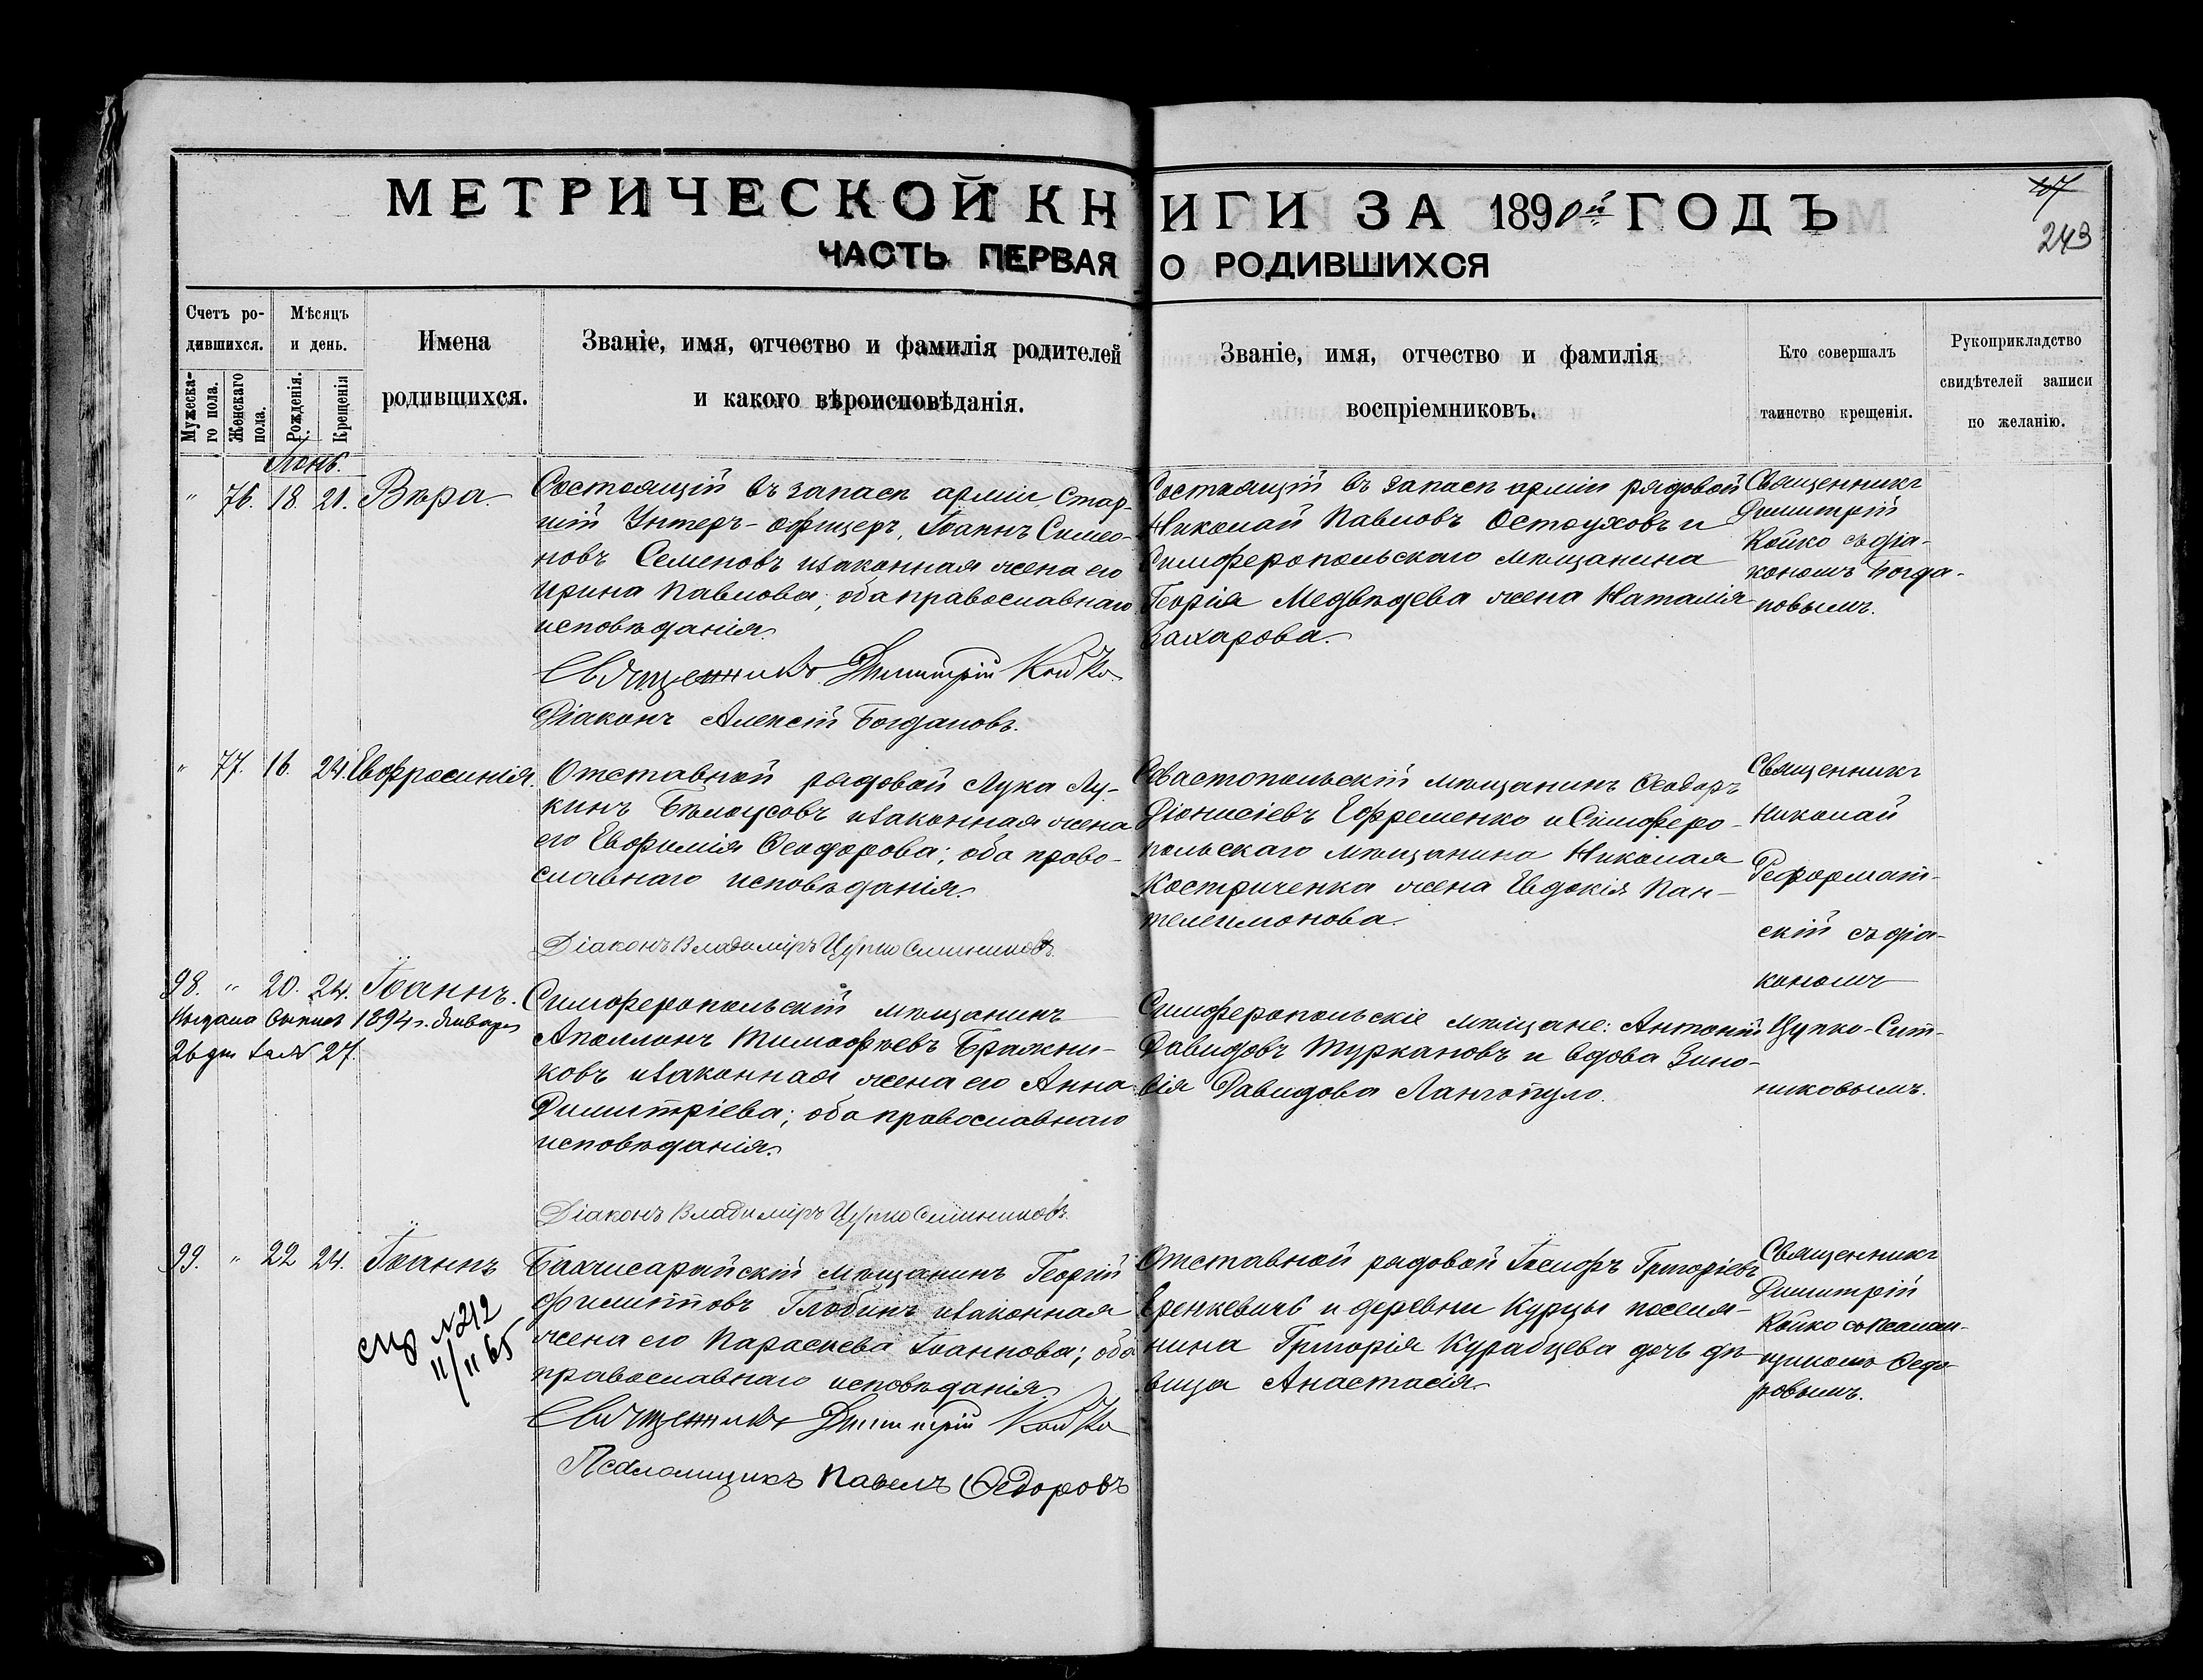 МЕТРИЧЕСКОЙ КНИГИ ЗА 1890й ГОДЪ
ЧАСТЬ ПЕРВАЯ О РОДИВШИХСЯ
243
Счетъ родившихся.
Мужескаго пола.
Женскаго пола.
Мѣсяцъ и день.
Рожденія.
Крещенія
Имена
родившихся.
Званіе, имя, отчество и фамилія родителей
и какого вѣроисповѣданія.
Званіе, имя, отчество и фамилія
воспріемниковъ.
Кто совершалъ
таинство крещенія.
Рукоприкладство
свидѣтелей записи
по желанію.
Іюнь.
" 76. 18. 21. Вѣра.
Состоящій въ запасѣ арміи, Стар-
шій Унтеръ-офицеръ, Іоаннъ Симео-
новъ Семеновъ и законная жена его
Ирина Павлова; оба православнаго
исповѣданія.
Священникъ Димитрій Койко
Діаконъ Алексій Богдановъ.
Состоящій въ запасѣ арміи рядовой
Николай Павловъ Остоуховъ и
Симферопольскаго мѣщанина
Георгія Медвѣдева жена Наталія
Захарова.
Священникъ
Димитрій
Койко съ діа-
кономъ Богда-
новымъ.
" 77. 16. 24. Евфросинія.
Отставной рядовой Лука Лу-
кинъ Бѣлоусовъ и законная жена
его Евфимія Ѳеодорова; оба право-
славнаго исповѣданія.
Діаконъ Владиміръ Цупко Ситниковъ.
Севастопольскій мѣщанинъ Ѳеодоръ
Діонисіевъ Ефременко и Симферо-
польскаго мѣщанина Николая
Костриченка жена Евдокія Пан-
телеимонова.
Священникъ
Николай
Реформат-
скій съ діа-
кономъ
Цупко-Сит-
никовымъ.
98. " 20. 24. Іоаннъ.
Выдана выпись 1894 г. Января
26 дня за № 27.
Симферопольскій мѣщанинъ
Аполлонъ Тимофѣевъ Бражни-
ковъ и законная жена его Анна
Димитріева; оба православнаго
исповѣданія.
Діаконъ Владиміръ Цупко Ситниковъ.
Симферопольскіе мѣщане: Антоній
Давидовъ Туркановъ и вдова Зино-
вія Давидова Лангопуло.
99. " 22 24. Іоаннъ
№ 212
11/11 65
Бахчисарайскій мѣщанинъ Георгій
Филипповъ Глобинъ и законная
жена его Параскева Іоаннова; оба
православнаго исповѣданія.
Священникъ Димитрій Койко
Псаломщикъ Павелъ Ѳедоровъ
Отставной рядовой Іосифъ Григорьевъ
Еренкевичъ и деревни Курцы поселя-
нина Григорія Курабцева дочь дѣ-
вица Анастасія.
Священникъ
Димитрій
Койко съ псалом-
щикомъ Ѳедо-
ровымъ.